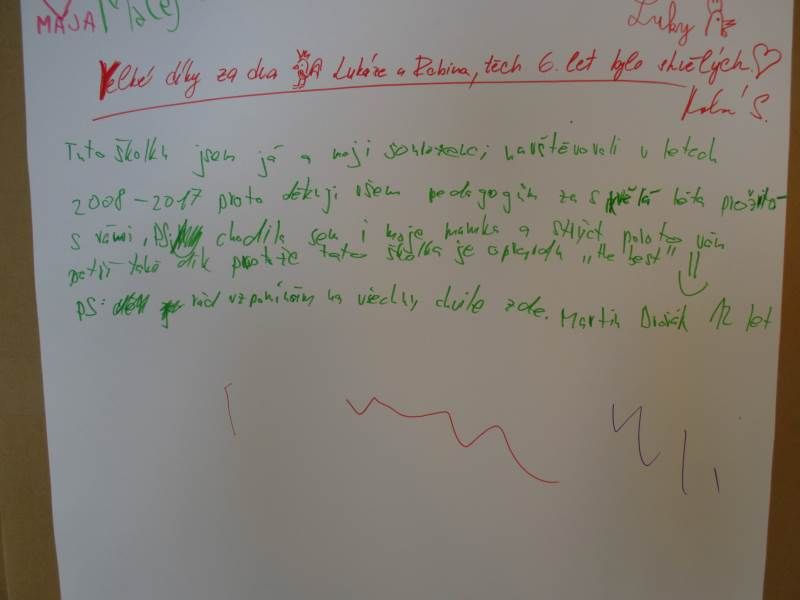 MÁJA
Luky
Velké díky za dva Lukáše a Robina, těch 6. let bylo skvělých.
S.
Tuto školku jsem já a moji sourozenci navštěvovali v letech
2008-2017 proto děkuji všem pedagogům za skvělá léta prožitá
s vámi, PS: chodila sem i moje mamka a strýc proto vám
patří také dík protože tato školka je opravdu „the best"
PS: rád vzpomínám na všechny chvíle zde. Martin Dvořák 12 let